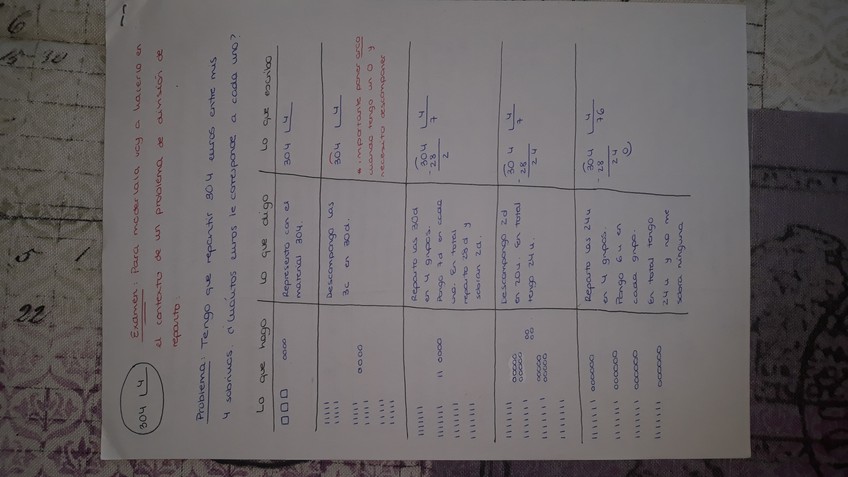 304 4
Examen: Para modelarla voy a hacerlo en
el contexto de un problema de división de
reparto.
Problema: Tengo que repartir 304 euros entre mis
4 sobrinos. ¿Cuántos euros le corresponde a cada uno?
Lo que hago Lo que digo Lo que escribo
Represento con el
material 304.
304 4
Descompongo las
3c en 30d.
304 4
* importante poner arco
cuando tengo un 0 y
necesito descomponer
Reparto las 30d
en 4 grupos.
Pongo 7d en cada
uno. En total
reparto 28d y
sobran 2d.
304 4
- 28 7
2
Descompongo 2d
en 20u. En total
tengo 24u.
304 4
- 28 7
24
Reparto las 24u
en 4 grupos.
Pongo 6u en
cada grupo.
En total tengo
24u y no me
sobra ninguna
304 4
- 28 76
24
0
6
5 1
22